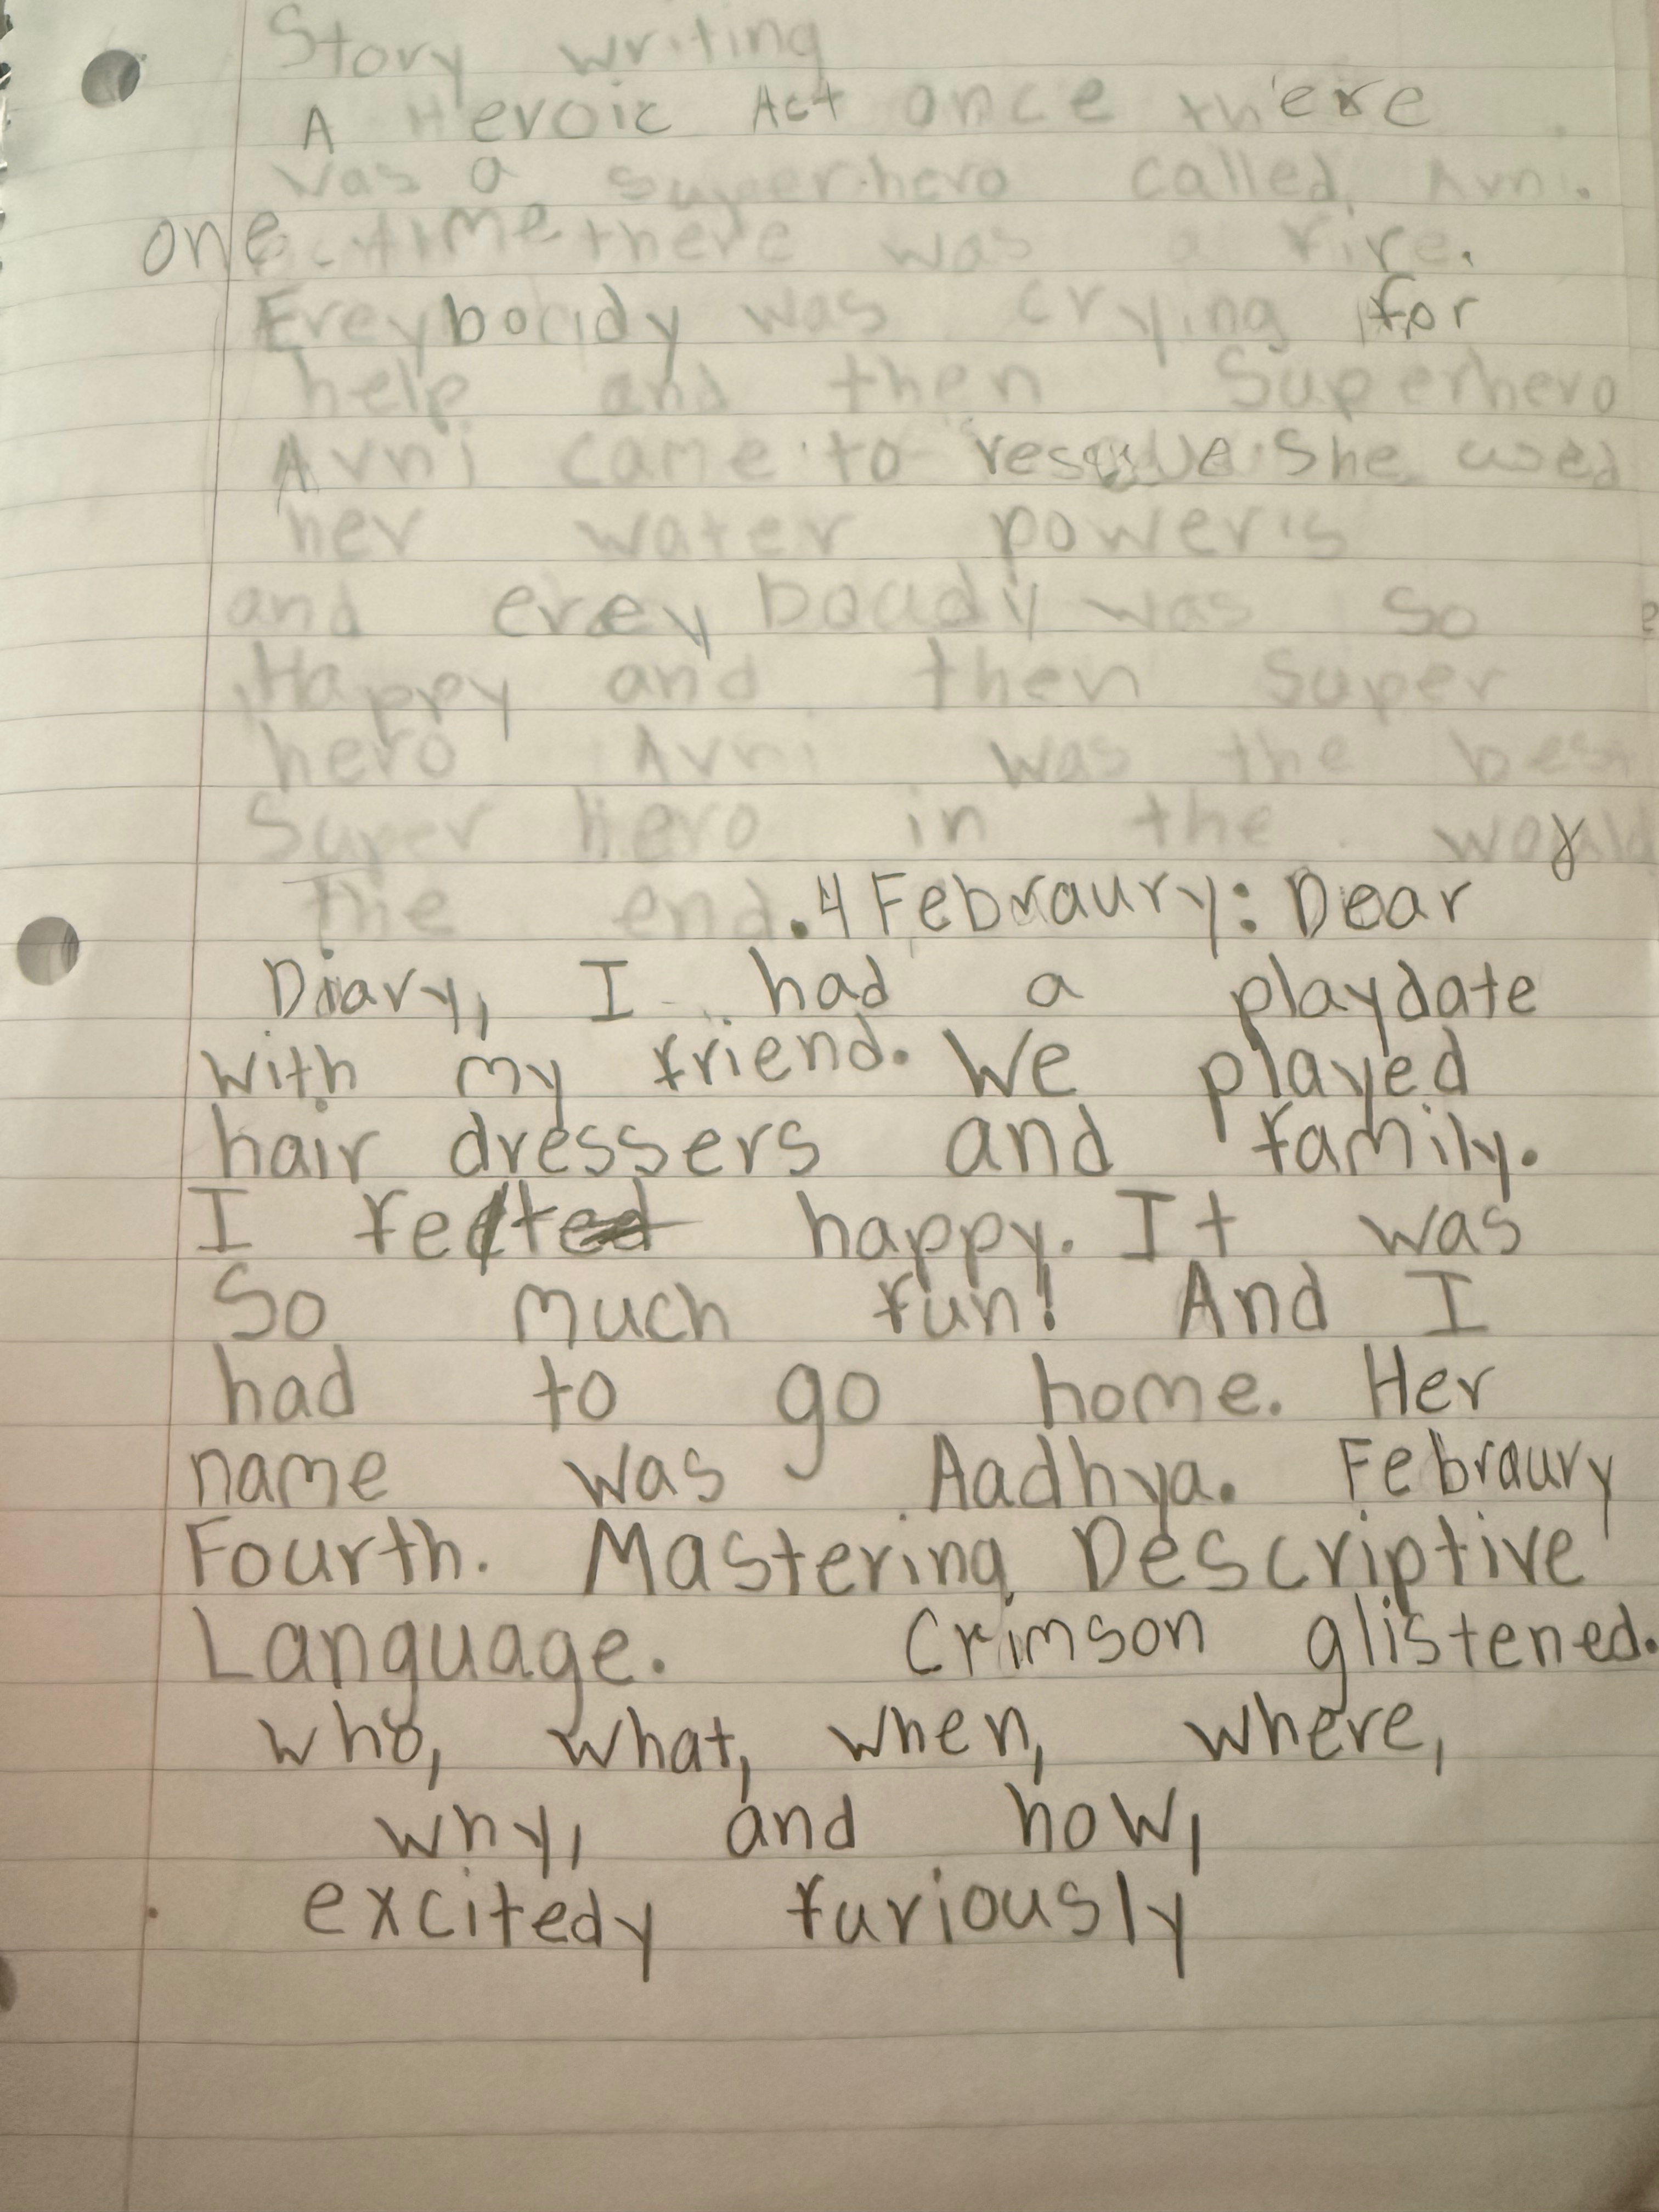 Story writing
A Heroic Act once there
was a superhero called Avni.
one time there was a fire.
Ereyboady was crying for
help and then Superhero
Avni came to rescue She used
her water power's
and erey boady was so
Happy and then Super
hero Avni was the best
Super Hero in the
the end. 4 Febraury: Dear
Diary, I had a playdate
with my friend. We played
hair dressers and family.
I felt happy. It was
So much fun! And I
had to go home. Her
name was Aadhya. Febraury
Fourth. Mastering Descriptive
Language. Crimson glistened.
who, what, when, where,
why, and how,
excitedy furiously